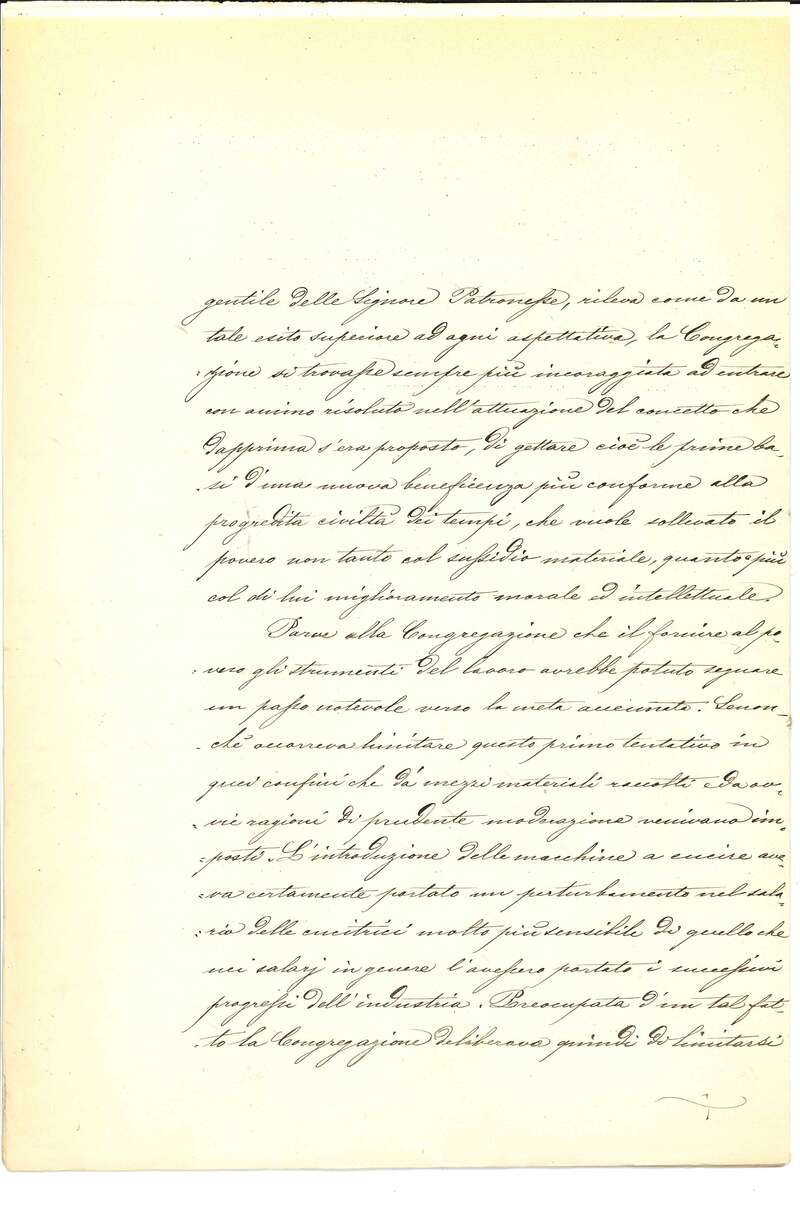 gentile delle Signore Patronesse, rileva come da un
tale esito superiore ad ogni aspettativa, la Congrega=
=zione si trovasse sempre più incoraggiata ad entrare
con animo risoluto nell'attuazione del concetto che
dapprima s'era proposto, di gettare cioè le prime ba-
-si d'una nuova beneficenza più conforme alla
progredita civiltà dei tempi, che vuole sollevato il
povero non tanto col sussidio materiale, quanto più
col di lui miglioramento morale ed intellettuale.
Parve alla Congregazione che il fornire al po-
-vero gli strumenti del lavoro avrebbe potuto segnare
un passo notevole verso la meta accennata. Senon-
-chè occorreva limitare questo primo tentativo in
quei confini che dà mezzi materiali raccolti e da ov-
-vie ragioni di prudente moderazione venivano im=
=posti. L'introduzione delle macchine a cucire ave=
=va certamente portato un perturbamento nel sala=
=rio delle cucitrici molto più sensibile di quello che
nei salarj in genere l'avessero portato i successivi
progressi dell'industria. Preocupata d'un tal fat-
-to la Congregazione deliberava quindi di limitarsi